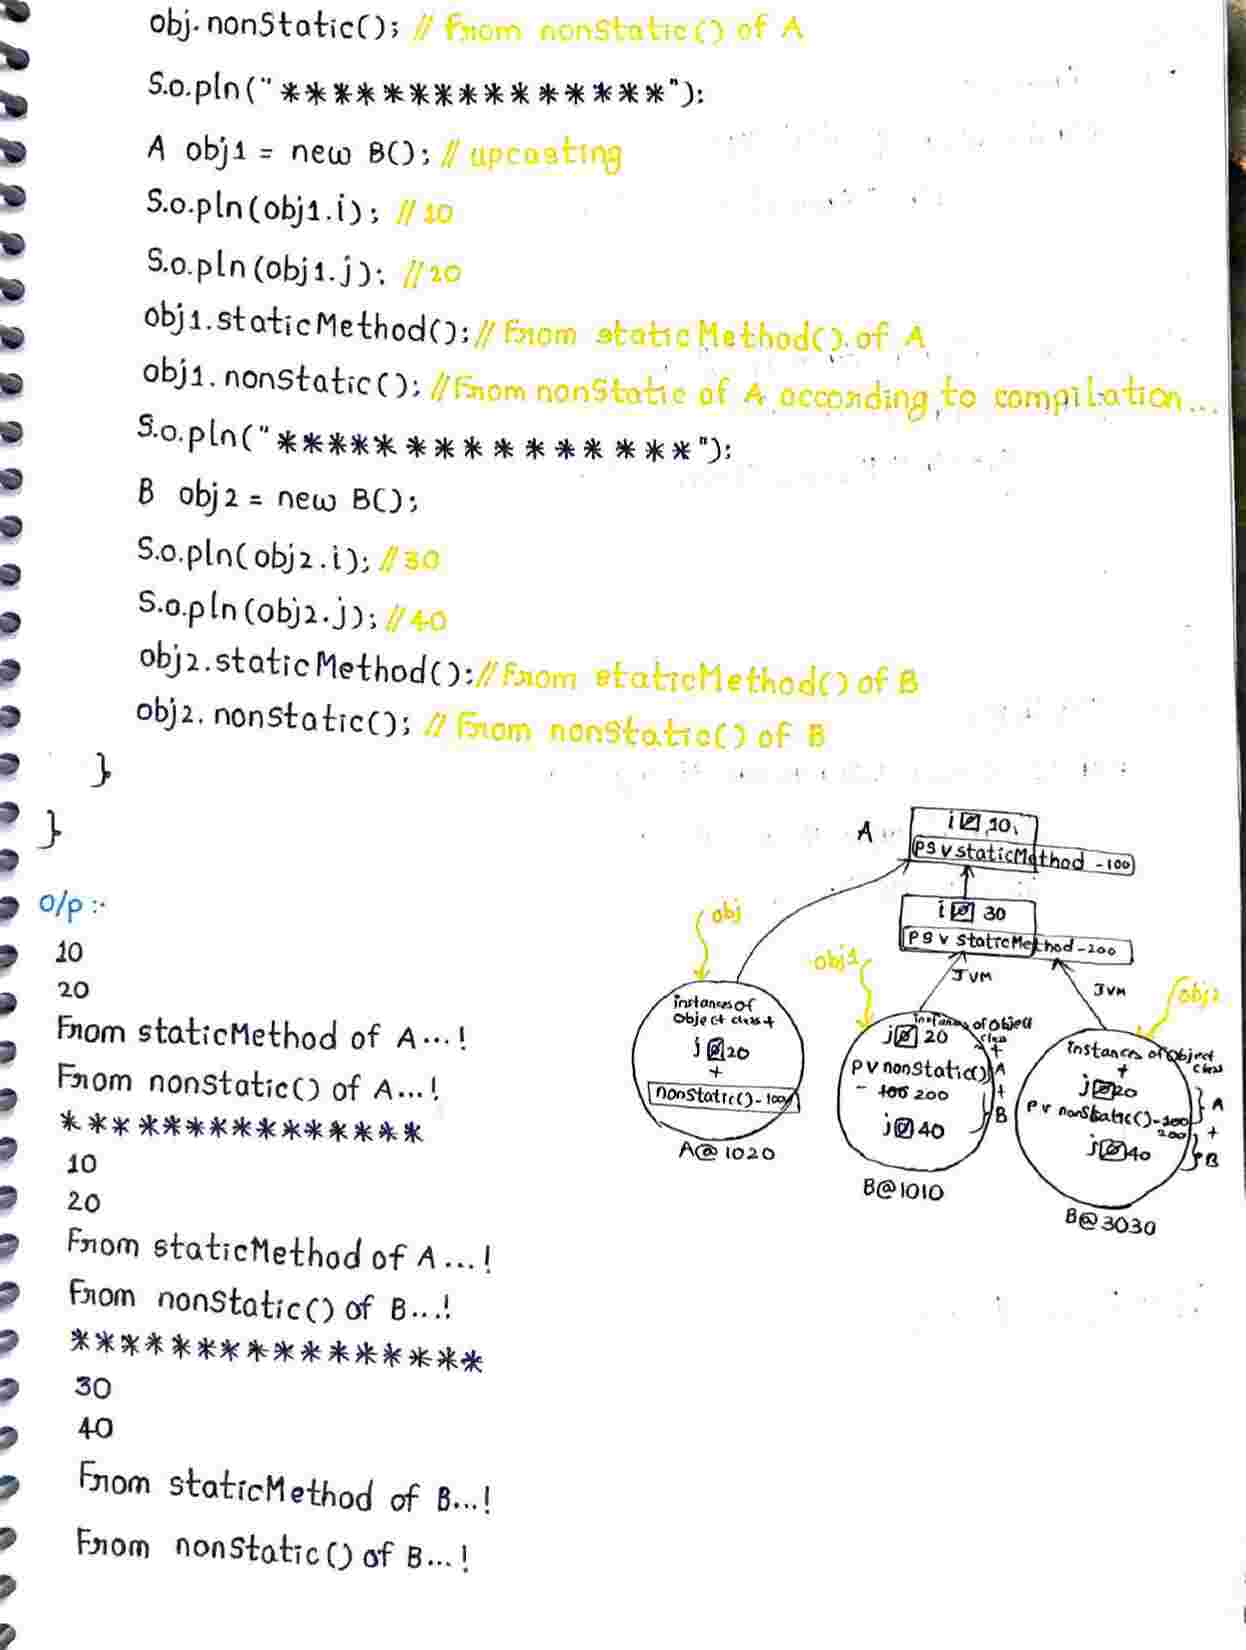 obj.nonStatic(); // From nonStatic() of A
S.o.pln("****************");
A obj1 = new B(); // upcasting
S.o.pln(obj1.i); // 10
S.o.pln(obj1.j); // 20
obj1.staticMethod(); // From staticMethod() of A
obj1.nonStatic(); // From nonStatic of A according to compilation...
S.o.pln("****************");
B obj2 = new B();
S.o.pln(obj2.i); // 30
S.o.pln(obj2.j); // 40
obj2.staticMethod(); // From staticMethod() of B
obj2.nonStatic(); // From nonStatic() of B
}
}
o/p :-
10
20
From staticMethod of A...!
From nonStatic() of A...!
***************
10
20
From staticMethod of A...!
From nonStatic() of B...!
****************
30
40
From staticMethod of B...!
From nonStatic() of B...!
A
i 0 10
psv staticMethod -100
i 0 30
psv staticMethod -200
JVM
JVM
obj
instances of
object class +
j 0 20
+
nonStatic() - 100
A@1020
obj1
instances of Object
class
+
j 0 20
pv nonStatic() A
- 100 200
+
B
j 0 40
B@1010
obj2
instances of Object
class
+
j 0 20
pv nonStatic() - 100
200
A
+
B
j 0 40
B@3030